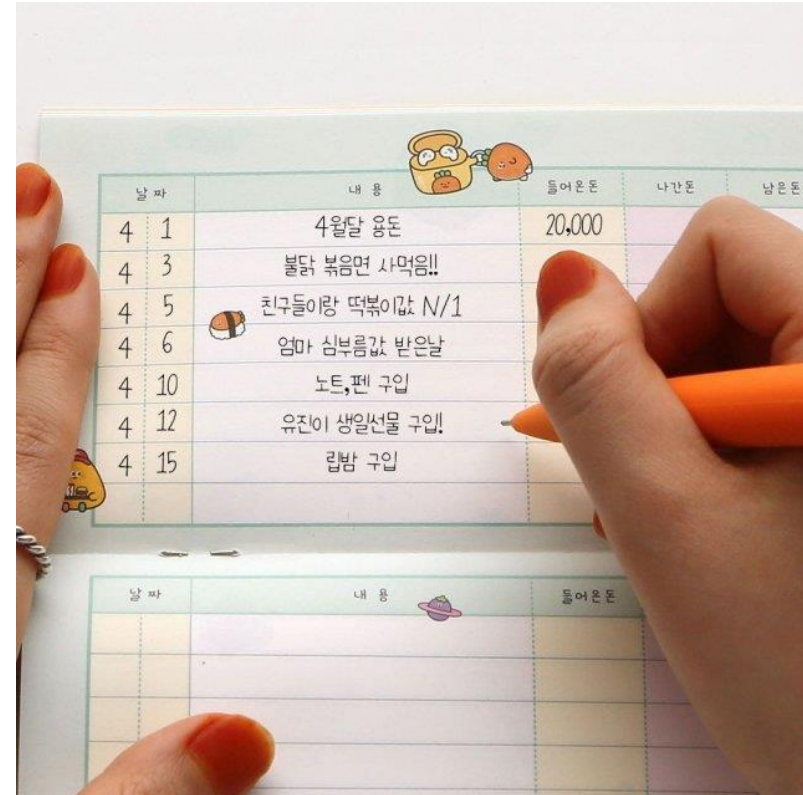 날짜 내용 들어온돈 나간돈 남은돈
4 1 4월달 용돈 20,000
4 3 불닭 볶음면 사먹음!!
4 5 친구들이랑 떡볶이값 N/1
4 6 엄마 심부름값 받은날
4 10 노트,펜 구입
4 12 유진이 생일선물 구입!
4 15 립밤 구입
날짜 내용 들어온돈